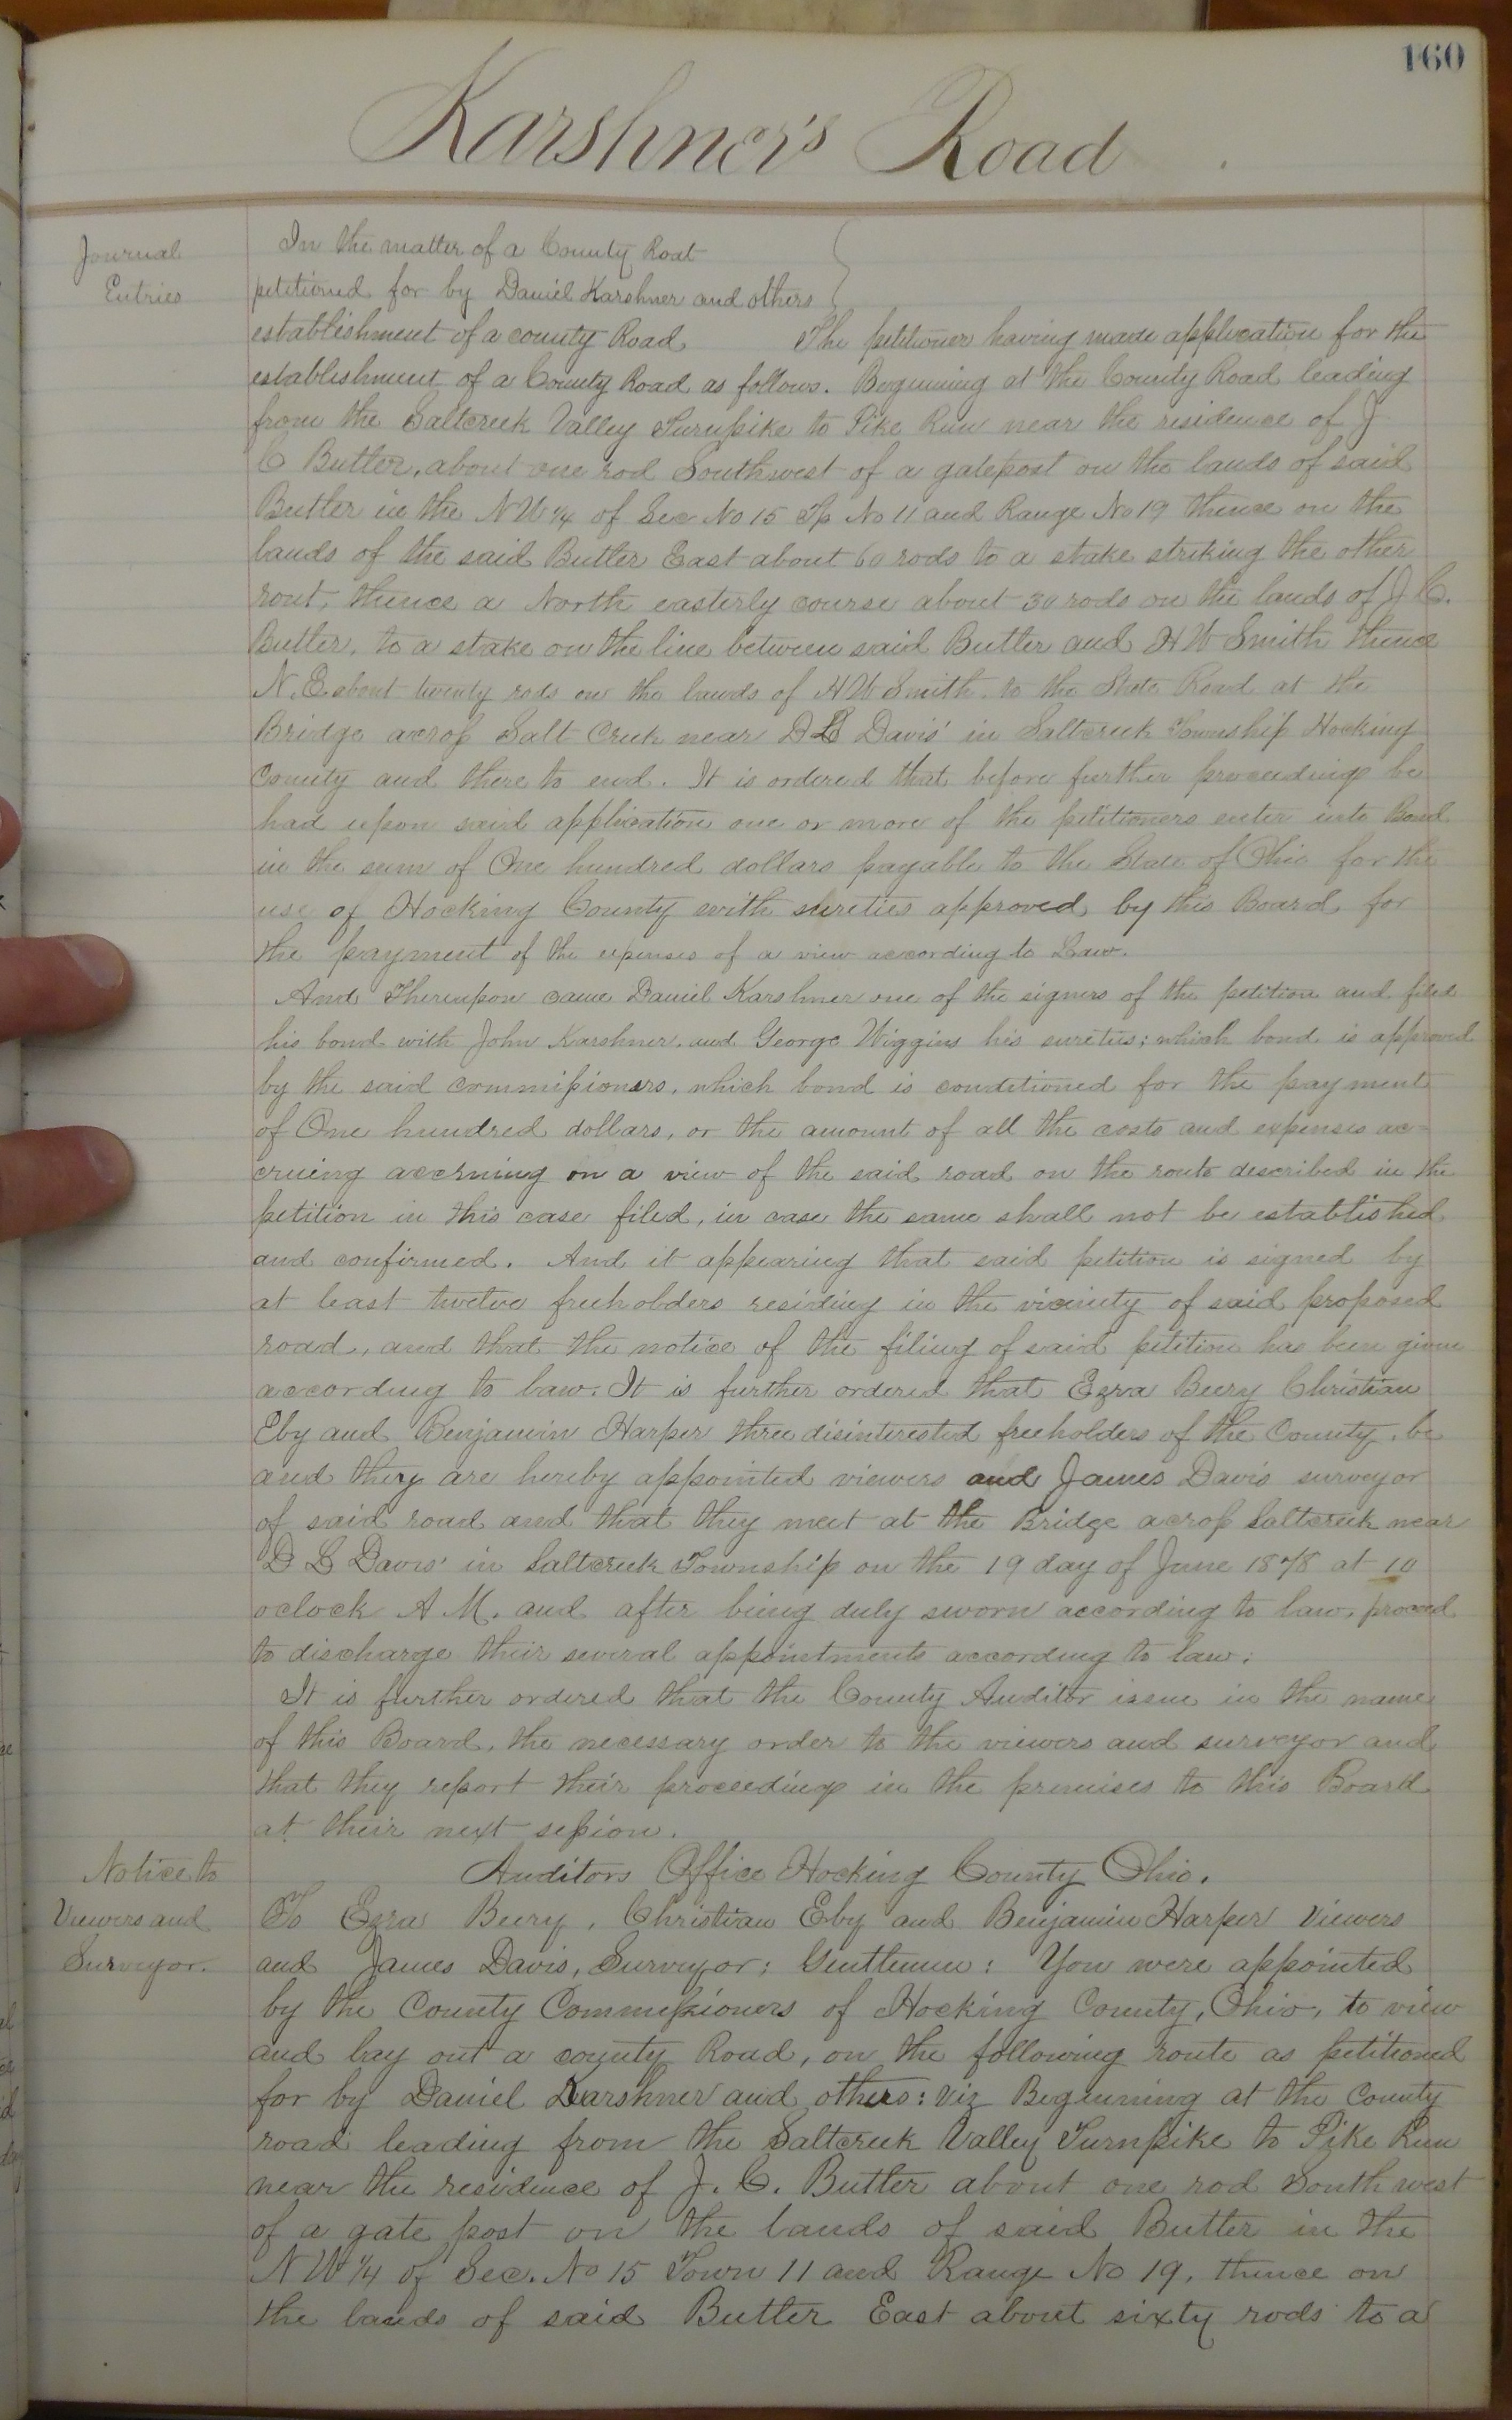 160
Karshner's Road
Journal
Entries
In the matter of a County Roat
petitioned for by Daniel Karshner and others
establishment of a county Road The petitioner having made application for the
establishment of a County Road as follows. Beginning at the County Road leading
from the Saltcreek Valley Turnpike to Pike Run near the residence of J
C Butler, about one rod Southwest of a gatepost on the lands of said
Butler in the N W 1/4 of Sec No 15 Tp No 11 and Range No 19 thence on the
lands of the said Butler East about 60 rods to a stake striking the other
rout, thence a North easterly course about 30 rods on the lands of J C.
Butler, to a stake on the line between said Butler and H W Smith thence
N. E about twenty rods on the lands of H W Smith to the State Road at the
Bridge across Salt Creek near D L Davis' in Saltcreek Township Hocking
County and there to end. It is ordered that before further proceedings be
had upon said application one or more of the petitioners enter into Bond
in the sum of One hundred dollars payable to the State of Ohio for the
use of Hocking County with sureties approved by this Board for
the payment of the expenses of a view according to Law.
And Thereupon came Daniel Karshner one of the signers of the petition and filed
his bond with John Karshner and George Wiggins his sureties; which bond is approved
by the said commissioners, which bond is conditioned for the payment
of One hundred dollars, or the amount of all the costs and expenses ac-
cruing accruing on a view of the said road on the route described in the
petition in this case filed, in case the same shall not be established
and confirmed. And it appearing that said petition is signed by
at least twelve freeholders residing in the vicinity of said proposed
road, and that the notice of the filing of said petition has been given
according to law. It is further ordered that Ezra Beery Christian
Eby and Benjamin Harper three disinterested freeholders of the County, be
and they are hereby appointed viewers and James Davis surveyor
of said road and that they meet at the Bridge across Saltcreek near
D L Davis' in Saltcreek Township on the 19 day of June 1878 at 10
oclock A M. and after being duly sworn according to law, proceed
to discharge their several appointments according to law.
It is further ordered that the County Auditor issue in the name
of this Board, the necessary order to the viewers and surveyor and
that they report their proceedings in the premises to this Board
at their next session.
Notice to
Viewers and
Surveyor.
Auditors Office Hocking County Ohio.
To Ezra Beery, Christian Eby and Benjamin Harper Viewers
and James Davis, Surveyor; Gentlemen: You were appointed
by the County Commissioners of Hocking County, Ohio, to view
and lay out a county Road, on the following route as petitioned
for by Daniel Karshner and others: viz Beginning at the County
road leading from the Saltcreek Valley Turnpike to Pike Run
near the residence of J. C. Butler about one rod South west
of a gate post on the lands of said Butler in the
N W 1/4 of Sec. No 15 Town 11 and Range No 19, thence on
the lands of said Butler East about sixty rods to a